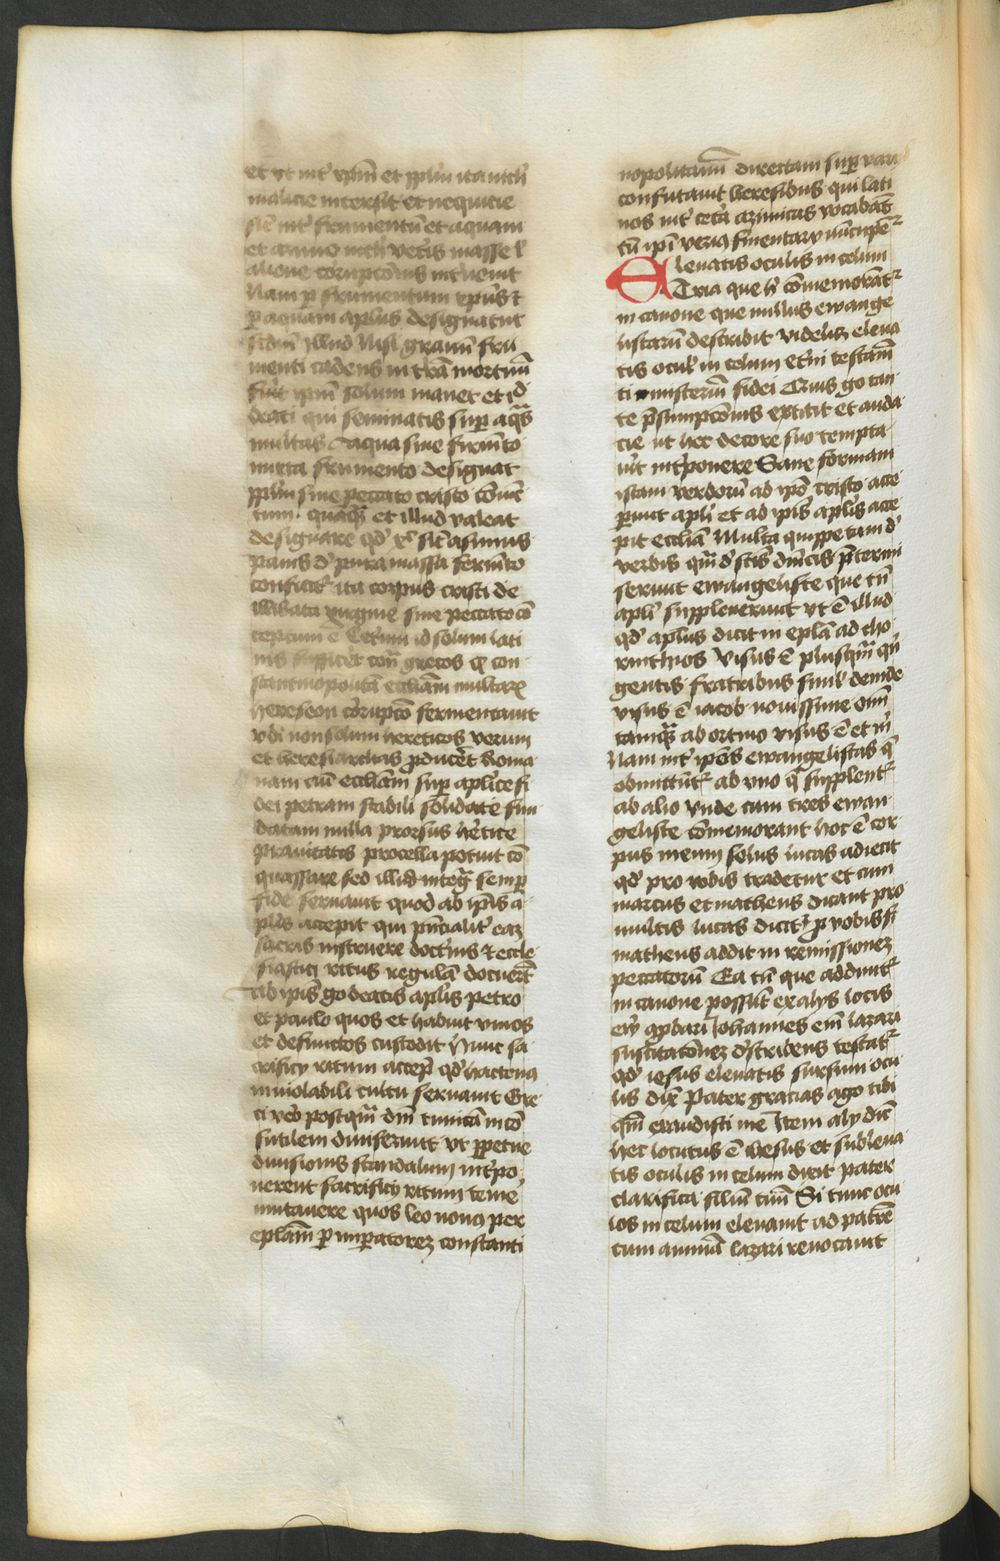 et ut int̄ xp̄m et pp̄lm̄ ita nich̄
malicie intersit et nequicie
sic̄ int̄ frumentū et aquam
et animo nich̄ vetīs masse ł
aliene corrupc̄onis int̄uenit
Nam ꝑ frumentum xp̄us ⁊
ꝑ aquam ap̄lus designatur
scd̄m illud Nisi granū fru
menti cadens in t̄rā mortuū
fūit ip̄m solum manet et id̄
beati qui seminatis suꝑ aq̄s
multas aqua sine firm̄to
mixta frumento designat
pp̄lm̄ sine peccato cristo cōiūc
tum · quāq̄ et illud valeat
designare qd̄ xc̄ sic̄ asimus
panis d̄ pura massa ferm̄to
conficit᷑ ita corpus cristi de
illibata virgine sine peccato cō
ceptum ē Cet̄um id solum lati
nis sufficēt con̄ grecos q con
stantinopolitā eccliām multax
hereseon corrupc̄o fermentauit
vbi non solum hereticos verum
et heresiarchas ꝓducēt Roma
nam cū eccliām suꝑ aplīce fi
dei petram stabili soliditate fun
datam nulla prorsus hētice
prauitatis procella potuit cō
quassare sed illud inteḡ semꝑ
fide seruauit quod ab ip̄is a
plīs accepit qui pn̄cialit̄ eaz
sacris instruere doct̄nis ⁊ eccle
siastici ritus regulā docuerūt
Ab ip̄is go beatis aplīs petro
et paulo quos et habuit viuos
et defunctos custodit hunc sa
crificij ritum accep̄ qd̄ hactenꝯ
inuiolabili cultu seruauit Gre
ci vero postqm̄ dm̄ tunicā incō
sutilem diuiserunt vt ꝑpetue
diuisionis scandalum int̄po
nerent sacrificij ritum teme
mutauere quos leo nonꝯ per
eplām ꝑ imꝑatorez constanti
nopolitanū directam suꝑ vari
confutauit heresibus qui lati
nos int̄ cet̄a azimitas vocabāt
cū ip̄i verius f̄mentarij nūcupēt᷑
Eleuatis oculis in celum
Tria que h̄ cōmemorāt᷑
in canone que nullus ewange
listarū describit videlicz eleua
tis oculis in celum etn̄i testam̄
ti misteriū fidei Cuius go tan
te p̄sumpc̄onis extitit et auda
cie ut hec de core suo tempta
uit int̄ponere Sane formam
istam verborū ab ip̄o cristo acce
perunt apl̄i et ab ip̄is apl̄is acce
pit eccliā Multa quippe tam d̄
verbis qm̄ d̄ fc̄is dn̄icis p̄termi
serunt ewangeliste que tn̄
apl̄i suppleuerunt vt ē illud
qd̄ aplus dicit in eplā ad cho
rinthios Visus ē plusqm̄ qn̄
gentis fratribus simul deinde
visus ē iacob nouissime om̄
tamq̄ abortiuo visus ē et m̄
Nam int̄ ip̄os ewangelistas q̄
obmittūt᷑ ab vno q̄ supplent᷑
ab alio vnde cum tres ewan
geliste cōmemorant hoc ē cor
pus meum solus lucas adiecit
qd̄ pro vobis tradetur et cum
marcus et matheus dicant pro
multis lucas dicit ꝑ vobis sꝫ
matheus addit in remissionez
peccatorū Ea tn̄ que addunt᷑
in canone possūt ex alijs locis
ew̄ ꝓbari Johannes em̄ lazari
suscitac̄onez d̄scribens testat᷑
qd̄ iesus eleuatis sursum ocu
lis dix̄ Pater gracias ago tibi
qm̄ exaudisti me Item alij dic̄
hec locutus ē Jhesus et subleua
tis oculis in celum dixit pater
clarifica filiū tuū Si tunc ocu
los in celum eleuauit ad patrē
cum animā lazari reuocauit